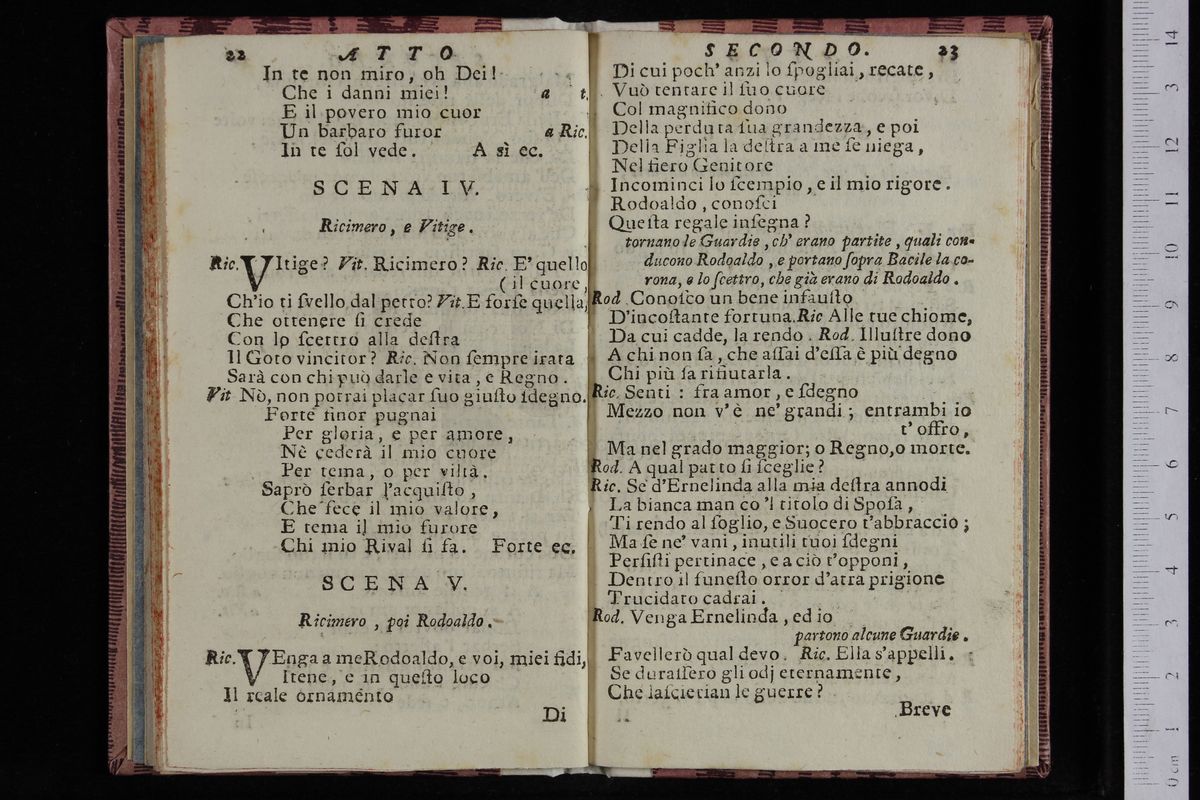 22 ATTO
In te non miro, oh Dei!
Che i danni miei! a t.
E il povero mio cuor
Un barbaro furor a Ric.
In te ſol vede. A sì ec.
SCENA IV.
Ricimero, e Vitige.
Ric. VItige? Vit. Ricimero? Ric. E' quello
( il cuore,
Ch'io ti ſvello dal petto? Vit. E forſe quella,
Che ottenere ſi crede
Con lo ſcettro alla deſtra
Il Goto vincitor? Ric. Non ſempre irata
Sarà con chi può darle e vita, e Regno.
Vit Nò, non potrai placar ſuo giuſto ſdegno.
Forte finor pugnai
Per gloria, e per amore,
Nè cederà il mio cuore
Per tema, o per viltà.
Saprò ſerbar l'acquiſto,
Che fece il mio valore,
E tema il mio furore
Chi mio Rival ſi fa. Forte ec.
SCENA V.
Ricimero, poi Rodoaldo.
Ric. VEnga a me Rodoaldo, e voi, miei fidi,
Itene, e in queſto loco
Il reale ornaménto
Di
SECONDO. 23
Di cui poch' anzi lo ſpogliai, recate,
Vuò tentare il ſuo cuore
Col magnifico dono
Della perduta ſua grandezza, e poi
Della Figlia la deſtra a me ſe niega,
Nel fiero Genitore
Incominci lo ſcempio, e il mio rigore.
Rodoaldo, conoſci
Queſta regale inſegna?
tornano le Guardie, ch' erano partite, quali con-
ducono Rodoaldo, e portano ſopra Bacile la co-
rona, e lo ſcettro, che già erano di Rodoaldo.
Rod. Conoſco un bene infauſto
D'incoſtante fortuna. Ric Alle tue chiome,
Da cui cadde, la rendo. Rod. Illuſtre dono
A chi non ſa, che aſſai d'eſſa è più degno
Chi più ſa rifiutarla.
Ric. Senti: fra amor, e ſdegno
Mezzo non v'è ne' grandi; entrambi io
t' offro,
Ma nel grado maggior; o Regno, o morte.
Rod. A qual patto ſi ſceglie?
Ric. Se d'Ernelinda alla mia deſtra annodi
La bianca man co 'l titolo di Spoſa,
Ti rendo al ſoglio, e Suocero t'abbraccio;
Ma ſe ne' vani, inutili tuoi ſdegni
Perſiſti pertinace, e a ciò t'opponi,
Dentro il funeſto orror d'atra prigione
Trucidato cadrai.
Rod. Venga Ernelinda, ed io
partono alcune Guardie.
Favellerò qual devo. Ric. Ella s'appelli.
Se duraſſero gli odj eternamente,
Che laſcierian le guerre?
Breve